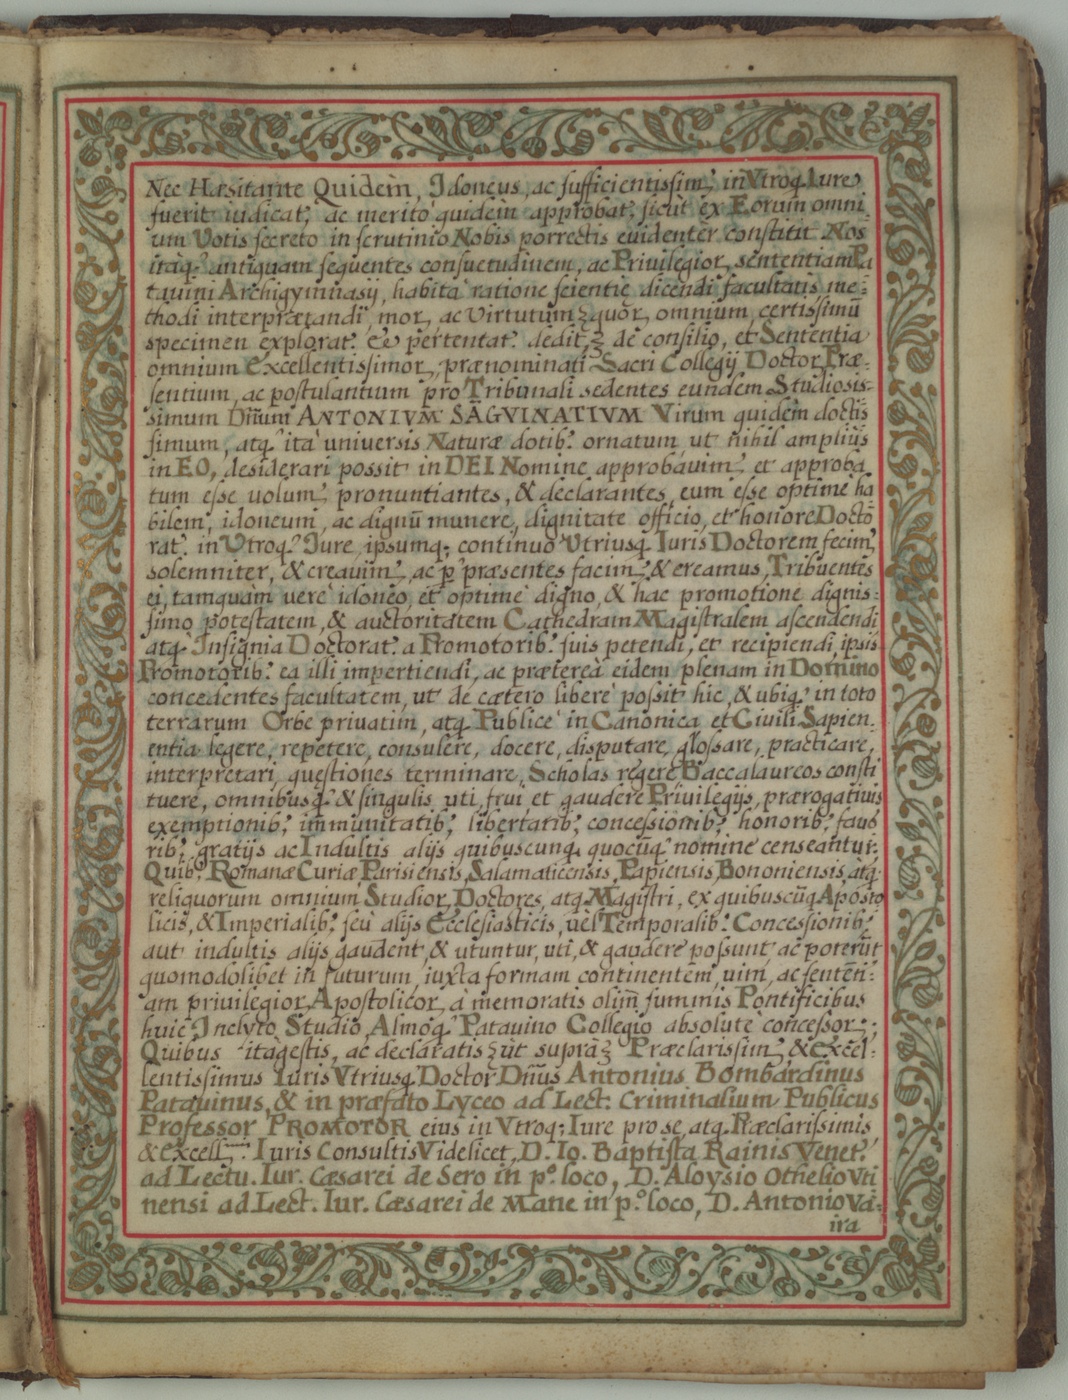 Nec Hæsitante Quidem, Idoneus, ac sufficientissim, in Vtroq. Iure
fuerit iudicat, ac merito quidem approbat, sicut ex Eorum omni-
um Votis secreto in scrutinio Nobis porrectis euidenter constitit Nos
itaq. antiquam sequentes consuetudinem, ac Priuilegior, sententiam Pa
tauini Archigymnasij, habita ratione scientię dicendi facultatis me-
thodi interprætandi, mor, ac Virtutum quor, omnium certissimũ
specimen explorat. & pertentat. dedit, de consilio, et Sententia
omnium Excellentissimor, prænominati Sacri Collegij Doctor Præ-
sentium, ac postulantium pro Tribunali sedentes eundem Studiosis-
simum Dñum ANTONIVM SÃGVINATIVM Virum quidem doctis
simum, atq. ita uniuersis Naturæ dotib. ornatum ut nihil amplius
in EO, desiderari possit in DEI Nomine approbauim, et approba
tum esse uolum, pronuntiantes, & declarantes, eum esse optime ha
bilem, idoneum, ac dignũ munere, dignitate officio, et honore Docto
rat. in Vtroq. Iure ipsumq; continuo Vtriusq. Iuris Doctorem fecim,
solemniter, & creauim, ac p præsentes facim, & creamus, Tribuentes
ei tamquam uere idoneo, et optime digno, & hac promotione dignis-
simo potestatem, & auctoritatem Cathedram Magistralem ascendendi
atq. Insignia Doctorat. a Promotorib. suis petendi, et recipiendi, ipsis
Promotorib. ea illi impertiendi, ac prætereà eidem plenam in Domino
concedentes facultatem, ut de cætero libere possit hic, & ubiq. in toto
terrarum Orbe priuatim, atq. Publice in Canonica et Ciuili Sapien-
entia legere, repetere, consulere, docere, disputare, glossare, practicare,
interpretari, questiones terminare, Scholas regere Baccalaureos consti
tuere, omnibusq. & singulis uti, frui et gaudere Priuilegijs, prærogatiuis
exemptionib, immunitatib, libertatib, concessionib, honorib, fauo
rib, gratijs ac Indultis alijs quibuscunq. quocuq. nomine censeantur.
Quib. Romanæ Curiæ, Parisiensis, Salamaticensis, Papiensis, Bononiensis, atq.
reliquorum omnium Studior, Doctores, atq. Magistri, ex quibuscũq. Aposto
licis, & Imperialib. seù alijs Ecclesiasticis, uèl Temporalib. Concessionib.
aut indultis alijs gaudent, & utuntur, uti, & gaudere possunt ac poterũt
quomodolibet in futurum, iuxta formam continentem, uim, ac senten-
am priuilegior, Apostolicor, a memoratis olim summis Pontificibus
huic Inclyto Studio, Almoq. Patauino Collegio absolute concessor,;
Quibus itagestis, ac declaratis ut supra Præclarissim, & Excel-
lentissimus Iuris Vtriusq. Doctor Dñus Antonius Bombardinus
Patauinus, & in præfato Lyceo ad Lect: Criminalium Publicus
Professor PROMOTOR eius in Vtroq; Iure pro se, atq. Præclarissimis
& Excell. Iuris Consultis Videlicet, D. Io. Baptista Rainis Venet.
ad Lectu. Iur. Cæsarei de Sero in p.º loco, D. Aloysio Othelio Vti
nensi ad Lect. Iur. Cæsarei de Mane in p.º loco, D. Antonio Va-
ira